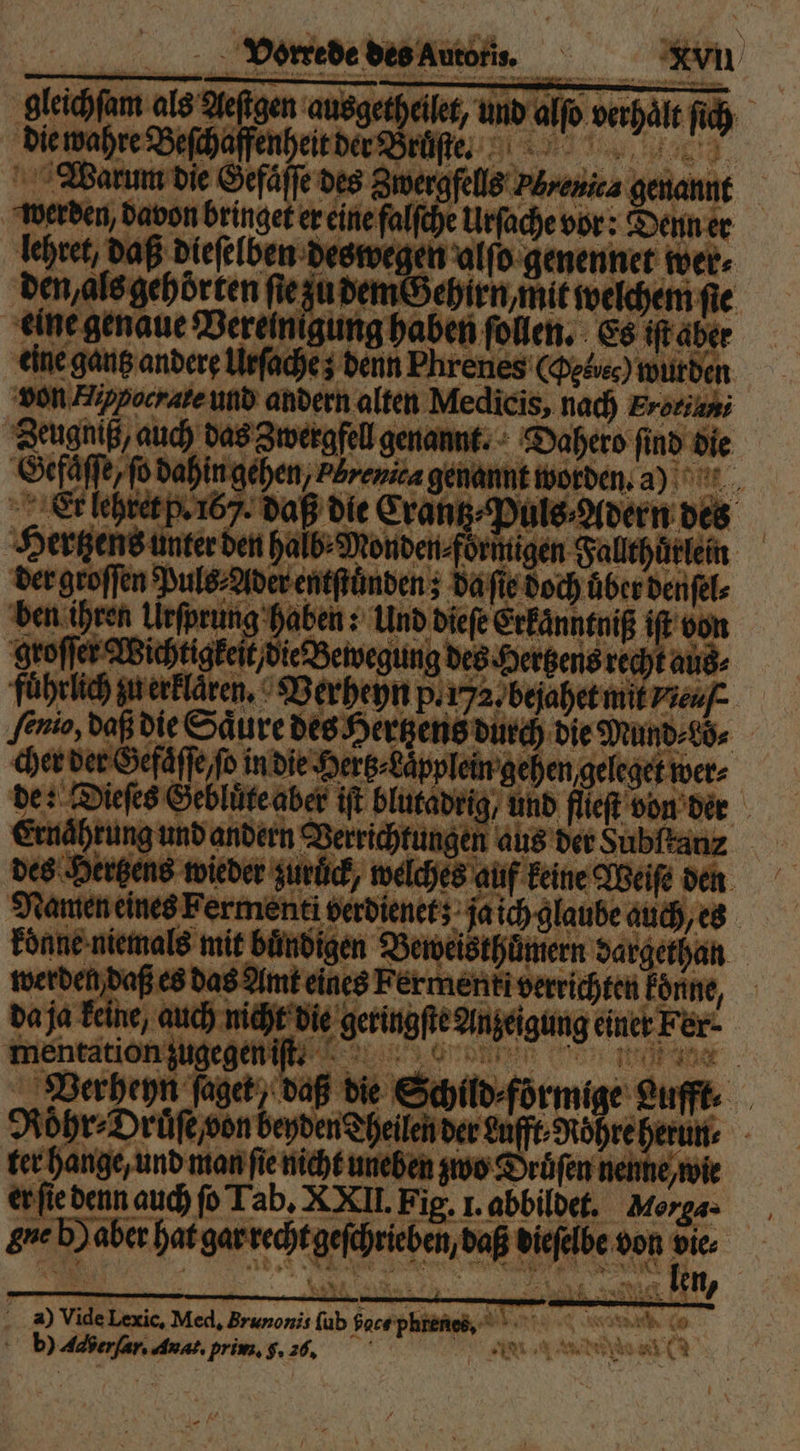 Vorrede des Autoris. XVII
gleichſam als Aeſtgen ausgetheilet, und alſo verhält ſich
die wahre Beſchaffenheit der Brüſte.
Warum die Gefäſſe des Zwergfells Phrenica genannt
werden, davon bringet er eine falſche Urſache vor: Denn er
lehret, daß dieſelben deswegen alſo genennet wer-
den, als gehörten ſie zu dem Gehirn, mit welchem ſie
eine genaue Vereinigung haben ſollen. Es iſt aber
eine gantz andere Urſache; denn Phrenes (Φρένες) wurden
von Hippocrate und andern alten Medicis, nach Erotiani
Zeugniß, auch das Zwergfell genannt. Dahero ſind die
Gefäſſe, ſo dahin gehen, Phrenica genannt worden. a)
Er lehret p. 167. daß die Crantz-Puls-Adern des
Hertzens unter den halb-Monden-förmigen Fallthürlein
der groſſen Puls-Ader entſtünden; da ſie doch über denſel-
ben ihren Urſprung haben: Und dieſe Erkänntniß iſt von
groſſer Wichtigkeit, die Bewegung des Hertzens recht aus-
führlich zu erklären. Verheyn p. 172. bejahet mit Vieuſ-
ſenio, daß die Säure des Hertzens durch die Mund-Lö-
cher der Gefäſſe, ſo in die Hertz-Läpplein gehen, geleget wer-
de: Dieſes Geblüte aber iſt blutadrig, und flieſt von der
Ernährung und andern Verrichtungen aus der Subſtanz
des Hertzens wieder zurück, welches auf keine Weiſe den
Namen eines Fermenti verdienet; ja ich glaube auch, es
könne niemals mit bündigen Beweisthümern dargethan
werden, daß es das Amt eines Fermenti verrichten könne,
da ja keine, auch nicht die geringſte Anzeigung einer Fer-
mentation zugegen iſt.
Verheyn ſaget, daß die Schild-förmige Lufft-
Röhr-Drüſe, von beyden Theilen der Lufft-Röhre herun-
ter hange, und man ſie nicht uneben zwo Drüſen nenne, wie
er ſie denn auch ſo Tab. XXII. Fig. 1. abbildet. Morga-
gne b) aber hat gar recht geſchrieben, daß dieſelbe von vie-
len,
a) Vide Lexic. Med. Brunonis ſub voce phrenes.
b) Adverſar. Anat. prim. §. 26.